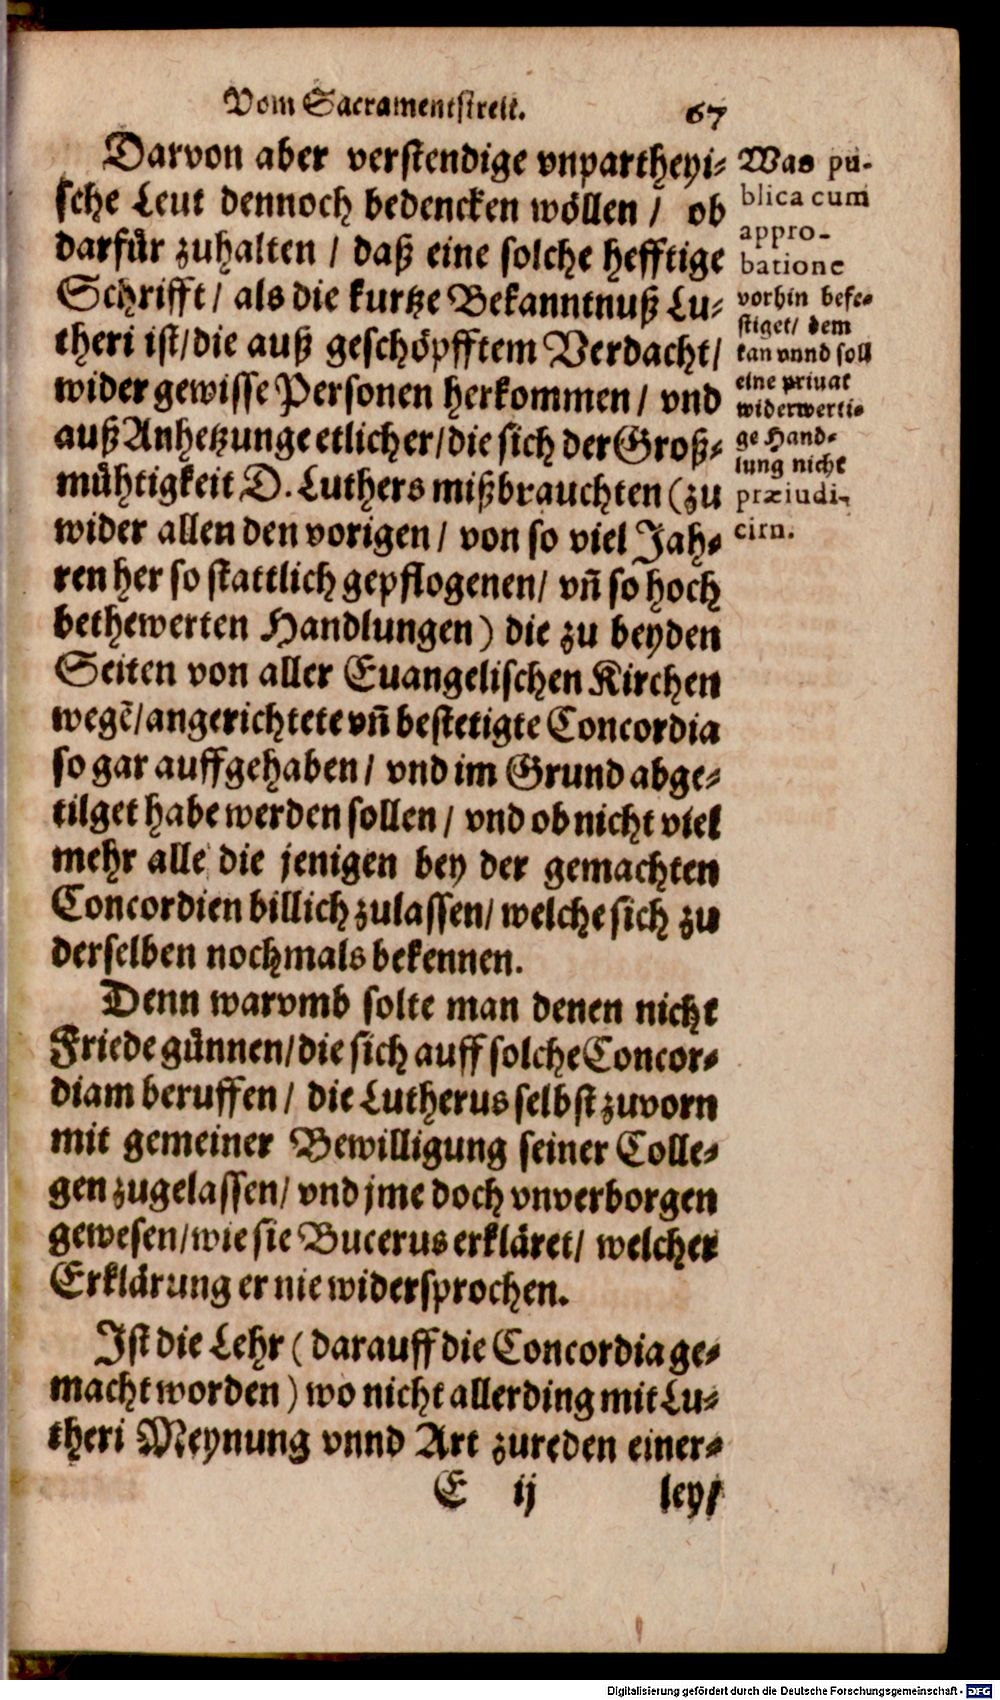 Vom Sacramentstreit. 67
Darvon aber verstendige vnpartheyi-
sche Leut dennoch bedencken wöllen / ob
darfür zuhalten / daß eine solche hefftige
Schrifft / als die kurtze Bekanntnuß Lu-
theri ist / die auß geschöpfftem Verdacht /
wider gewisse Personen herkommen / vnd
auß Anhetzunge etlicher / die sich der Groß-
mühtigkeit D. Luthers mißbrauchten (zu
wider allen den vorigen / von so viel Jah-
ren her so stattlich gepflogenen / vñ so hoch
bethewerten Handlungen) die zu beyden
Seiten von aller Euangelischen Kirchen
wegẽ / angerichtete vñ bestetigte Concordia
so gar auffgehaben / vnd im Grund abge-
tilget habe werden sollen / vnd ob nicht viel
mehr alle die jenigen bey der gemachten
Concordien billich zulassen / welche sich zu
derselben nochmals bekennen.
Denn warvmb solte man denen nicht
Friede günnen / die sich auff solche Concor-
diam beruffen / die Lutherus selbst zuvorn
mit gemeiner Bewilligung seiner Colle-
gen zugelassen / vnd jme doch vnverborgen
gewesen / wie sie Bucerus erkläret / welcher
Erklärung er nie widersprochen.
Ist die Lehr (darauff die Concordia ge-
macht worden) wo nicht allerding mit Lu-
theri Meynung vnnd Art zureden einer-
E ij ley /
Was pu-
blica cum
appro-
batione
vorhin befe-
stiget / dem
kan vnnd soll
eine priuat
widerwerti-
ge Hand-
lung nicht
præiudi-
cirn.
Digitalisierung gefördert durch die Deutsche Forschungsgemeinschaft - DFG